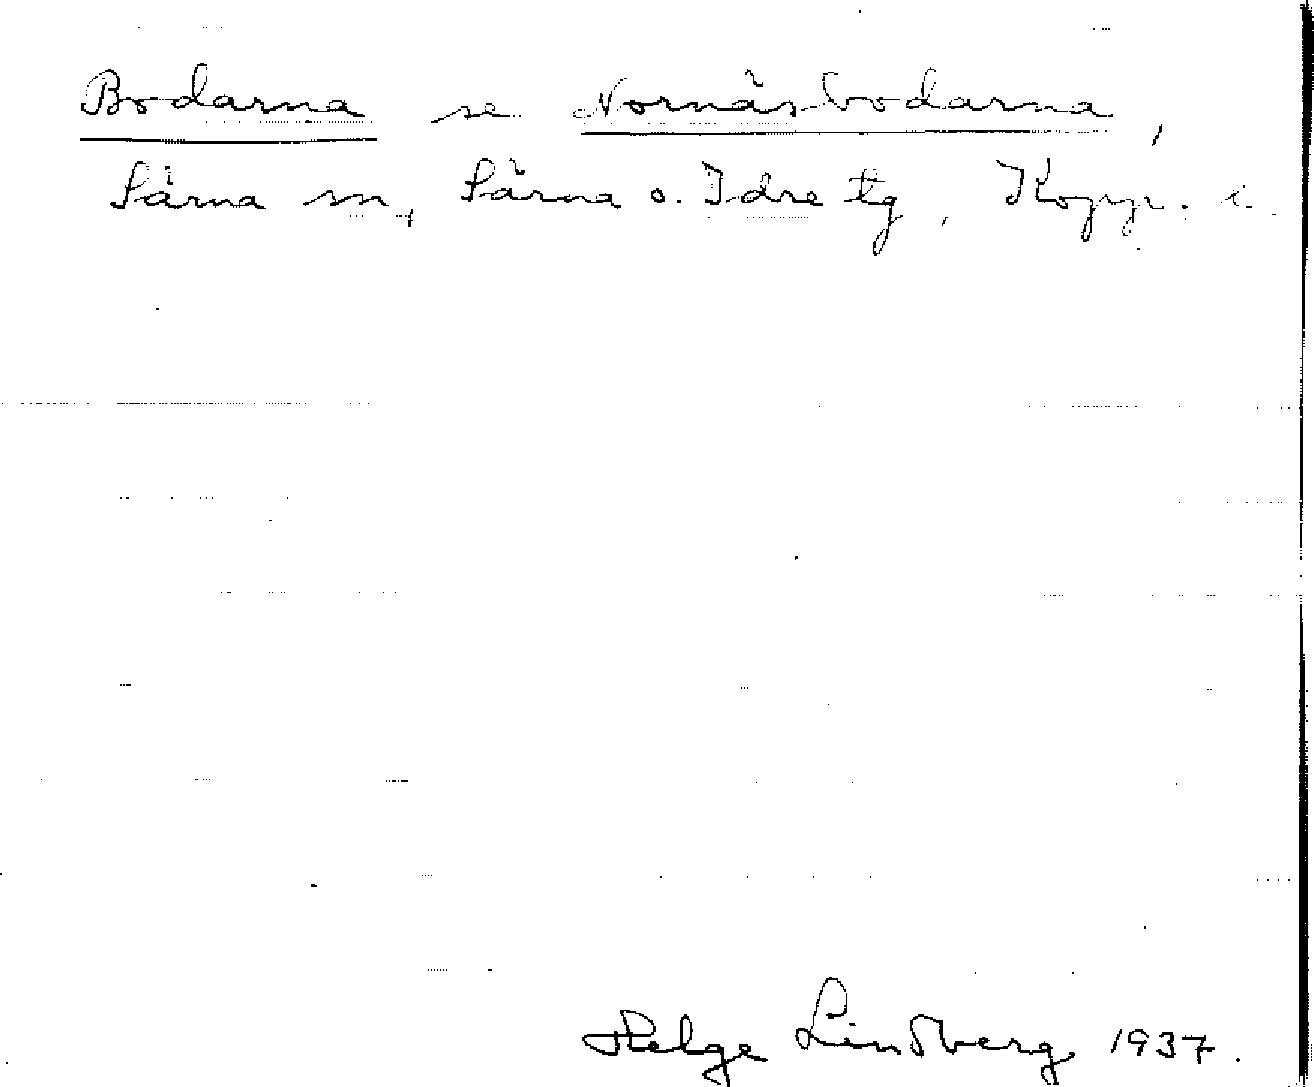 Bodarna se Nornäsbodarna,
Särna sn, Särna o. Idre tg, Kopp. l.
Helge Lindberg 1937.